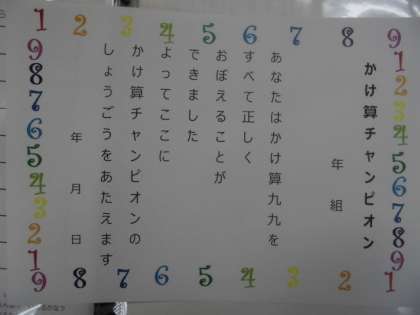 1 2 3 4 5 6 7 8 9
かけ算チャンピオン
年 組
あなたはかけ算九九を
すべて正しく
おぼえることが
できました
よってここに
かけ算チャンピオンの
しょうごうをあたえます
年 月 日
9 8 7 6 5 4 3 2 1 9
1 2 3 4 5 6 7 8 9
8 7 6 5 4 3 2 1